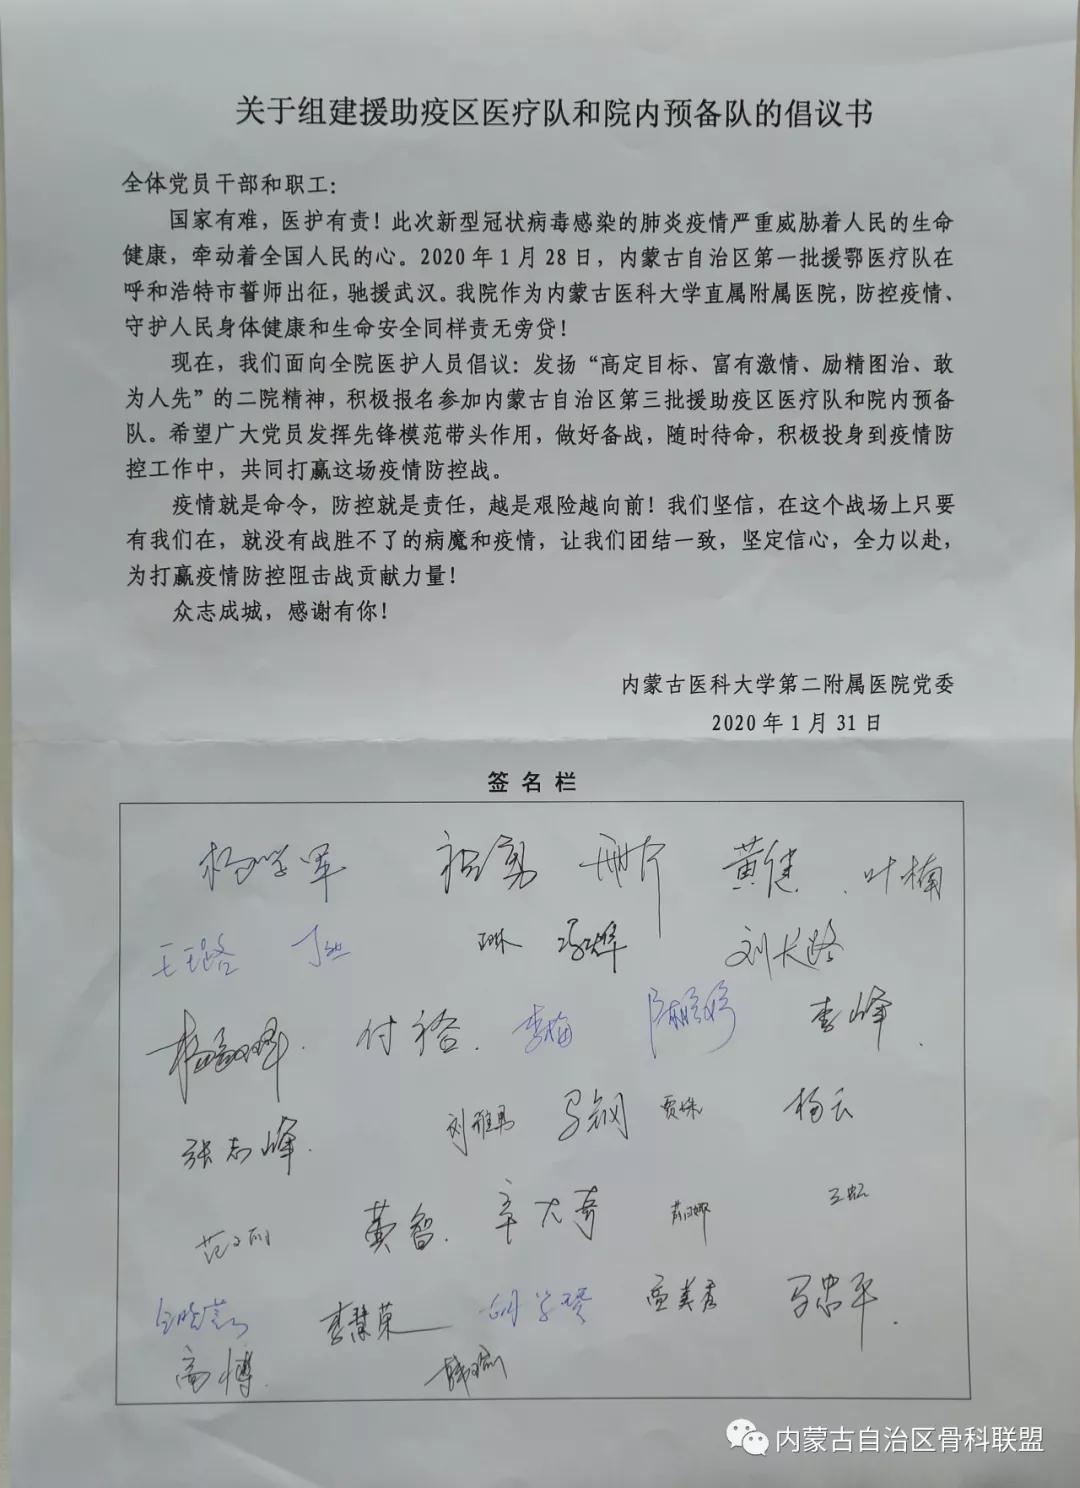 关于组建援助疫区医疗队和院内预备队的倡议书
全体党员干部和职工：
国家有难，医护有责！此次新型冠状病毒感染的肺炎疫情严重威胁着人民的生命
健康，牵动着全国人民的心。2020年1月28日，内蒙古自治区第一批援鄂医疗队在
呼和浩特市誓师出征，驰援武汉。我院作为内蒙古医科大学直属附属医院，防控疫情、
守护人民身体健康和生命安全同样责无旁贷！
现在，我们面向全院医护人员倡议：发扬“高定目标、富有激情、励精图治、敢
为人先”的二院精神，积极报名参加内蒙古自治区第三批援助疫区医疗队和院内预备
队。希望广大党员发挥先锋模范带头作用，做好备战，随时待命，积极投身到疫情防
控工作中，共同打赢这场疫情防控战。
疫情就是命令，防控就是责任，越是艰险越向前！我们坚信，在这个战场上只要
有我们在，就没有战胜不了的病魔和疫情，让我们团结一致，坚定信心，全力以赴，
为打赢疫情防控阻击战贡献力量！
众志成城，感谢有你！
内蒙古医科大学第二附属医院党委
2020年1月31日
签名栏
杨学军 黄健 叶楠
刘长路
付裕 李梅 李峰
张志峰 刘雅男 马钢 贾姝 杨云
黄智 辛大奇
李慧英 马忠平
高博
内蒙古自治区骨科联盟